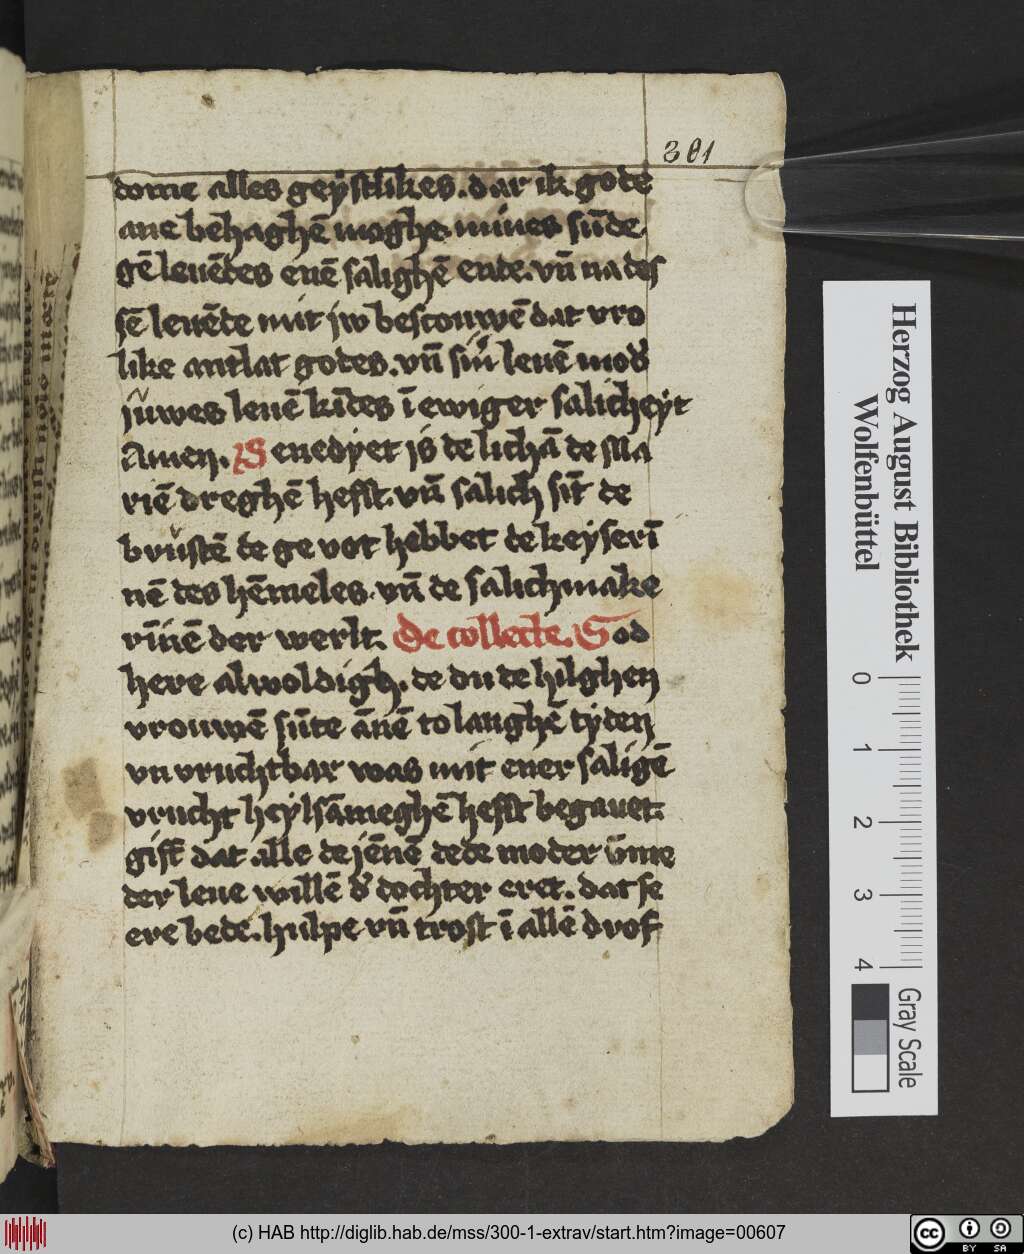 301
dome alles geystlikes. dar ik gode
ane behaghē moghe. mines sūde
gē leuēdes enē salighē ende. vn̄ na des
sē leuēde mit jw bescouwē dat vro
like antlat godes. vn̄ siner leuē mod᷑
juwes leuē kīdes ī ewiger salicheyt
Amen. Benedyet js de lichā de Ma
riē dreghē hefft. vn̄ salich sīt de
brůstē de ge vot hebbet de keyserī
nē des hēmeles. vn̄ de salichmake
rīnē der werlt. De collecte. God
here alwoldigh. de du de hilghen
vrouwē sūte ānē to langhē tyden
vn vruchtbar was mit ener saligē
vrucht heylsāmeghē hefft begauet.
giff dat alle de jēnē dede moder v̄me
der leue willē d᷑ dochter eret. dat se
ere bede. hulpe vn̄ trost ī allē drof
Herzog August Bibliothek
Wolfenbüttel
0 1 2 3 4
Gray Scale
(c) HAB http://diglib.hab.de/mss/300-1-extrav/start.htm?image=00607
cc BY SA